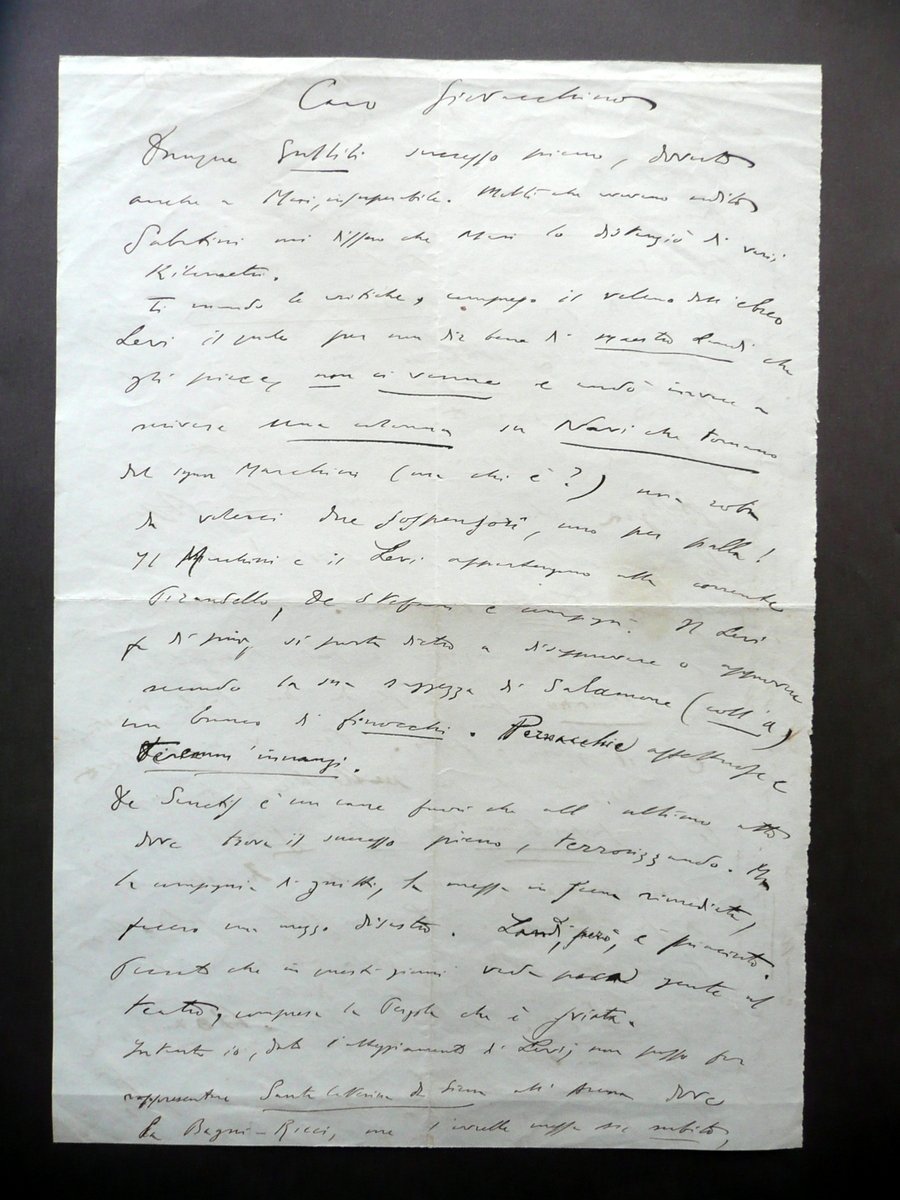 Caro Giovacchino
Dunque Gastibili successo pieno, dovuto
anche a Masi, insuperabile. Molti che avevano udito
Sabatini mi dissero che Masi lo distanziò di varii
Kilometri.
Ti mando le critiche, compreso il veleno dell'ebreo
Levi il quale per non dir bene di maestro Landi che
gli piace, non ci venne e andò invece a
scrivere una colonna su Navi che tornano
del signor Marchini (ma chi è?) una roba
da volerci due sospensori, uno per palla!
Il Marchini e il Levi appartengono alla corrente
Pirandello, De Stefani e compagni. Il Levi
fa di più, si porta dietro a disapprovare o approvare
secondo la sua saggezza di Salamone (coll'a)
un branco di finocchi. Pernacchie affettuose e
tiremm innanzi.
De Sanctis è un cane fuori che all'ultimo atto
dove trova il successo pieno, terrorizzando. Ma
la compagnia di guitti, la messa in scena rimediata,
fecero un mezzo disastro. Landi, però, è piaciuto.
Peccato che in questi giorni vada poca gente al
teatro, compresa la Pergola che è sviata.
Intanto io, dato l'atteggiamento di Levi, non posso far
rappresentare Santa Caterina da Siena all' Arena dove
la Bagni-Ricci, me l'avrebbe messa su subito,